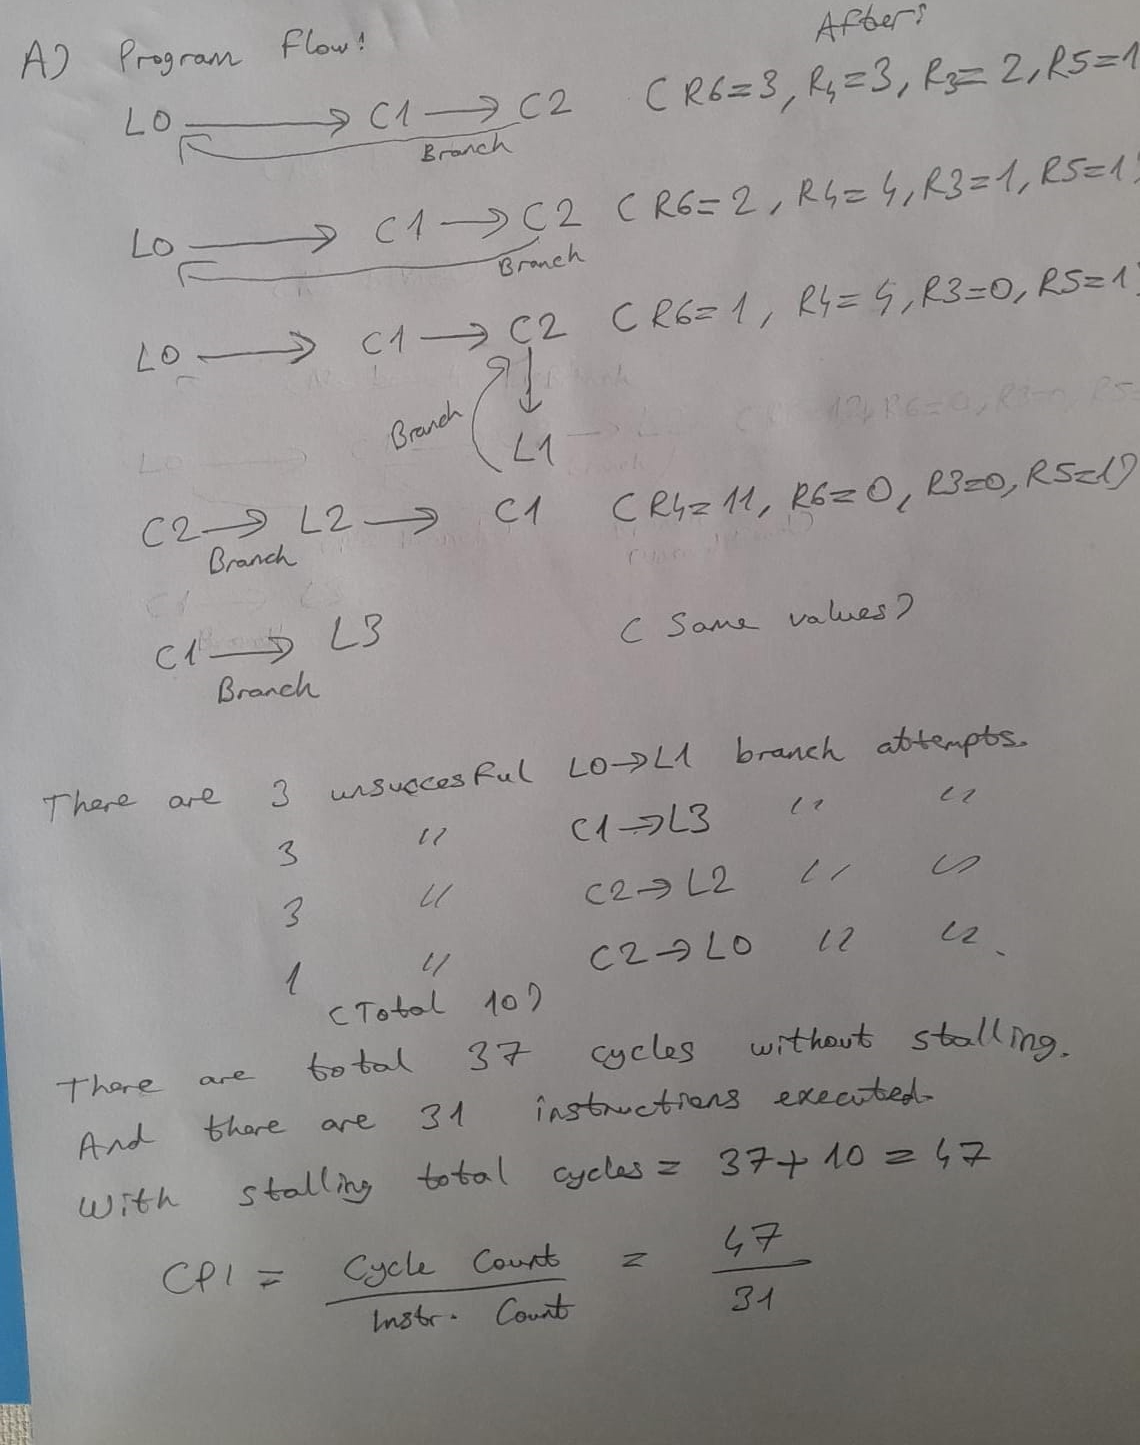 A) Program Flow! After:
L0 → C1 → C2 (R6=3, R4=3, R3=2, R5=1
Branch
L0 → C1 → C2 (R6=2, R4=4, R3=1, R5=1)
Branch
L0 → C1 → C2 (R6=1, R4=4, R3=0, R5=1)
Branch
L1
C2 → L2 → C1 (R4=11, R6=0, R3=0, R5=1)
Branch
C1 → L3 (Same values)
Branch
There are 3 unsuccesful L0→L1 branch attempts.
3 " C1→L3 " "
3 " C2→L2 " "
1 " C2→L0 " ".
(Total 10)
There are total 37 cycles without stalling.
And there are 31 instructions executed.
With stalling total cycles = 37+10 = 47
CPI = Cycle Count = 47
Instr. Count 31